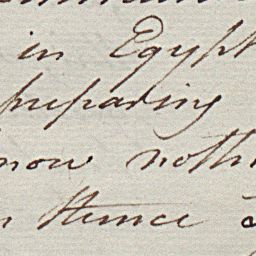 in Egypt
preparing
now noth
Hence